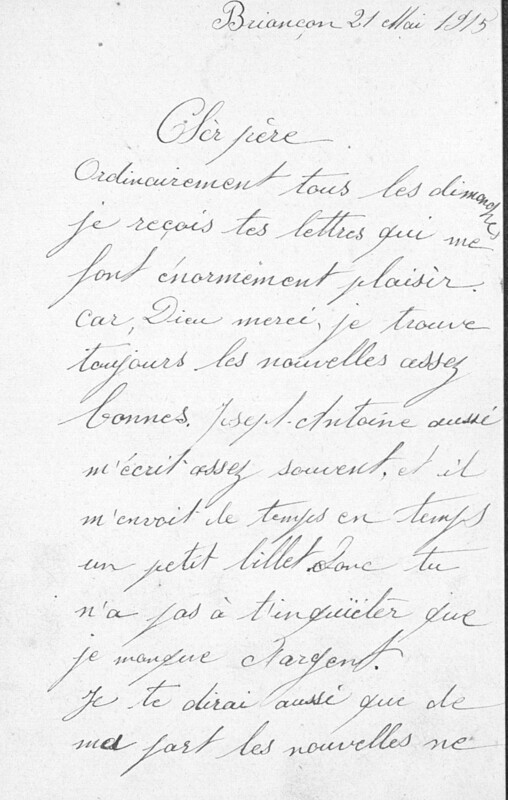 Briançon 21 Mai 1915
Chèr père
Ordinairement tous les dimanches
je reçois tes lettres qui me
font énormément plaisir.
car, Dieu merci, je trouve
toujours les nouvelles assez
bonnes. Joseph-Antoine aussi
m'écrit assez souvent, et il
m'envoit de temps en temps
un petit billet. Donc tu
n'a pas à t'inquiéter que
je manque d'argent.
Je te dirai aussi que de
ma part les nouvelles ne